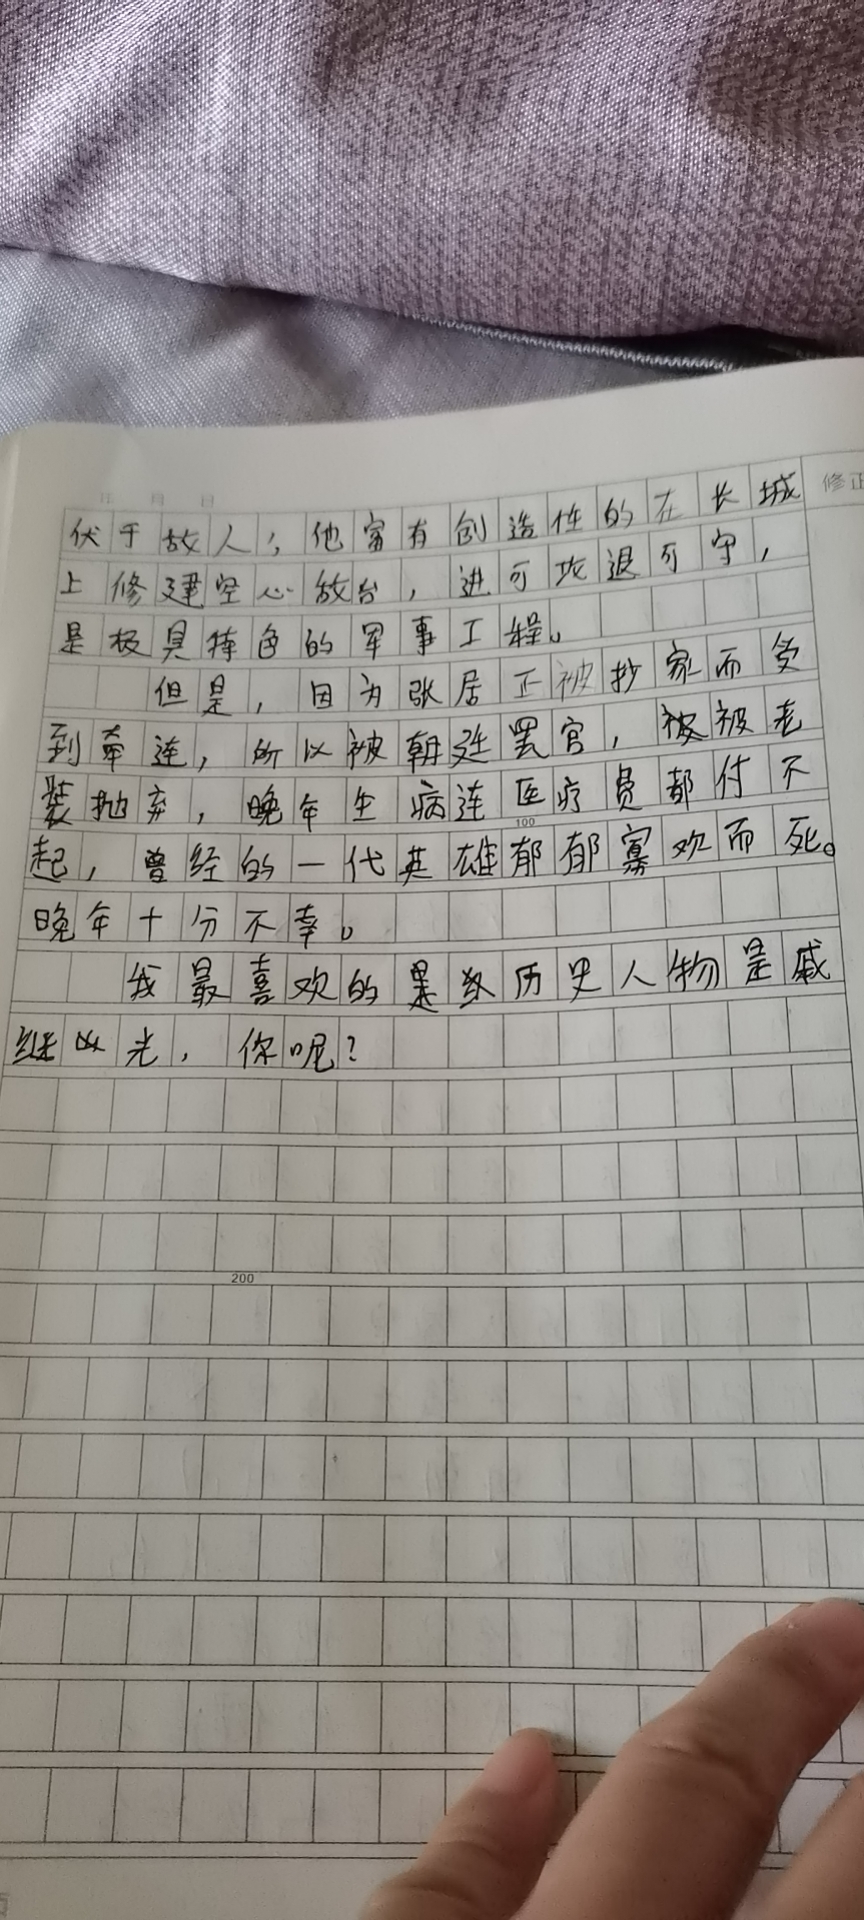 年 月 日
修正
伏于敌人,他富有创造性的在长城
上修建空心敌台,进可攻退可守,
是极具特色的军事工程。
但是,因为张居正被抄家而受
到牵连,所以被朝廷罢官,被被老
装抛弃,晚年生病连医疗员都付不
100
起,曾经的一代英雄郁郁寡欢而死。
晚年十分不幸。
我最喜欢的是历史人物是戚
继光,你呢?
200